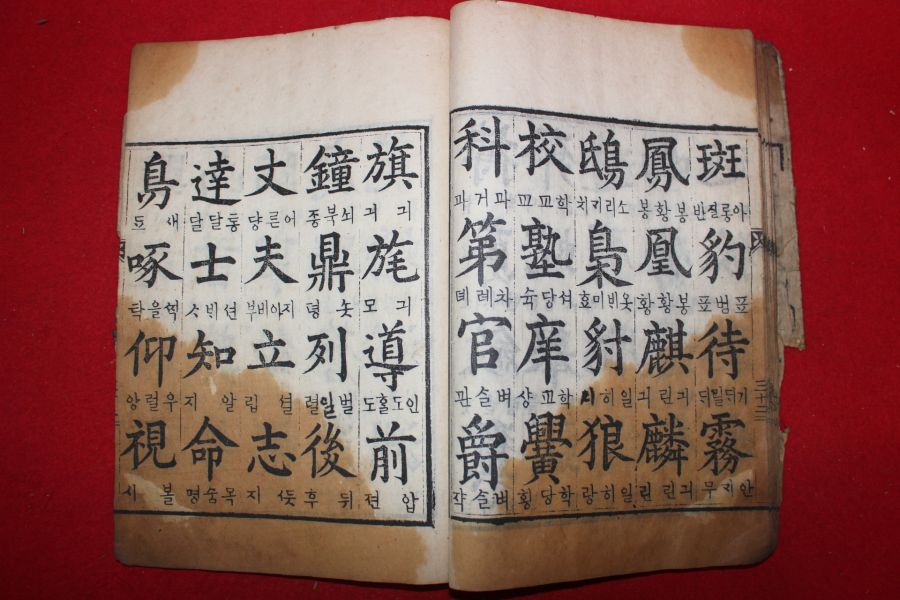 斑 아롱질반 豹 표범표 待 기ᄃᆞ릴ᄃᆡ 霧 안ᄀᆡ무
鳳 봉황봉 凰 봉황황 麒 긔린긔 麟 긔린린
鴟 소리기치 梟 옷비미효 豺 일히시 狼 일히랑
校 학교교 塾 셔당슉 庠 학교샹 黌 학당횡
科 과거과 第 차례뎨 官 벼슬관 爵 벼슬쟉
旗 긔긔 旄 긔모 導 인도홀도 前 압젼
鐘 쇠북죵 鼎 솟뎡 列 벌일렬 後 뒤후
丈 어른쟝 夫 지아비부 立 설립 志 ᄯᅳᆺ지
達 통달달 士 션비ᄉᆞ 知 알지 命 목숨명
鳥 새됴 啄 을탁 仰 우럴앙 視 볼시